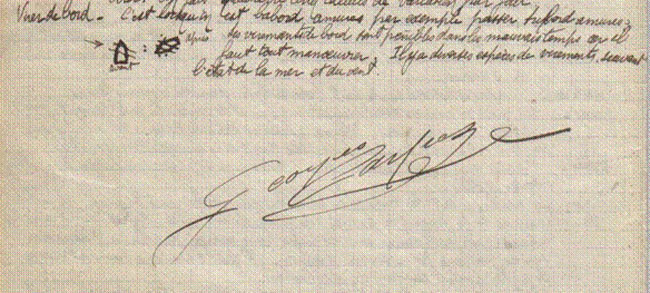 Virer de bord. C'est lorsqu'on est babord amures par exemple passer tribord amures;
après les virements de bord sont pénibles dans les mauvais temps car il
faut tout manœuvrer. Il y a diverses espèces de virements, suivant
l'état de la mer et du vent.
Georges